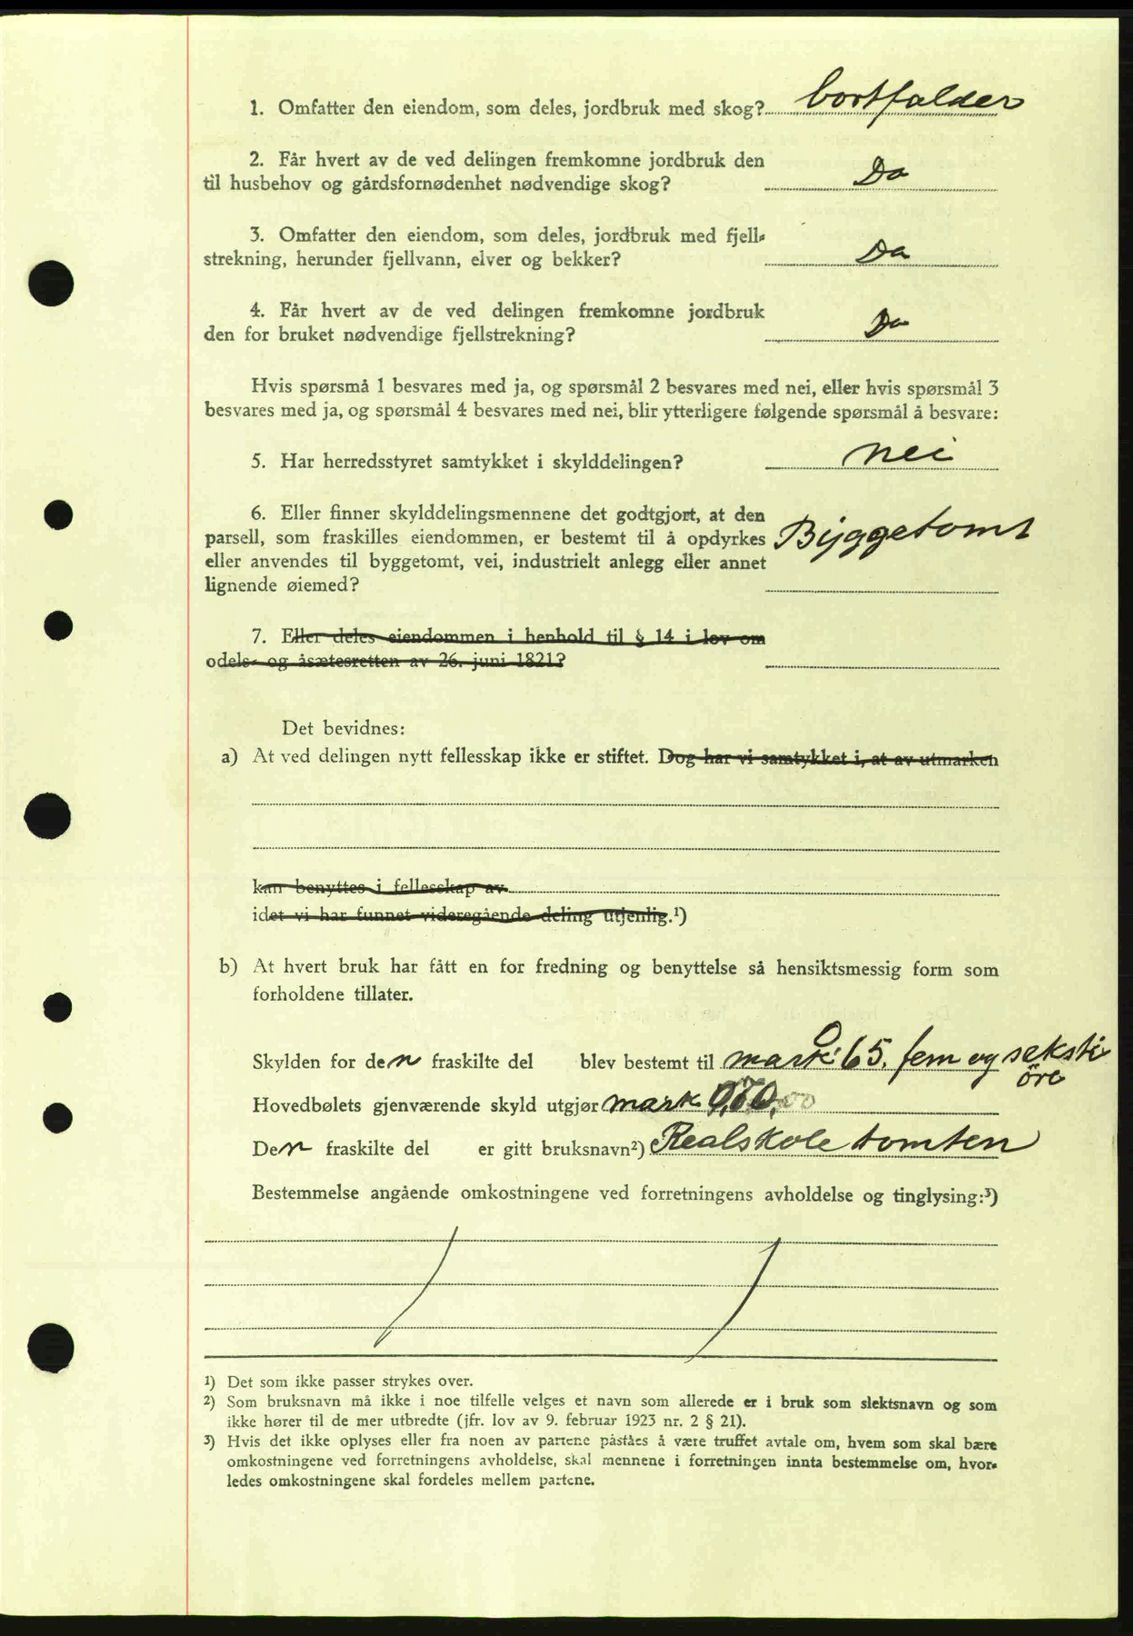 1. Omfatter den eiendom, som deles, jordbruk med skog? bortfalder
2. Får hvert av de ved delingen fremkomne jordbruk den
til husbehov og gårdsfornødenhet nødvendige skog? Do
3. Omfatter den eiendom, som deles, jordbruk med fjell-
strekning, herunder fjellvann, elver og bekker? Do
4. Får hvert av de ved delingen fremkomne jordbruk
den for bruket nødvendige fjellstrekning? Do
Hvis spørsmå 1 besvares med ja, og spørsmål 2 besvares med nei, eller hvis spørsmål 3
besvares med ja, og spørsmål 4 besvares med nei, blir ytterligere følgende spørsmål å besvare:
5. Har herredsstyret samtykket i skylddelingen? nei
6. Eller finner skylddelingsmennene det godtgjort, at den
parsell, som fraskilles eiendommen, er bestemt til å opdyrkes Byggetomt
eller anvendes til byggetomt, vei, industrielt anlegg eller annet
lignende øiemed?
7. Eller deles eiendommen i henhold til § 14 i lov om
odels- og åsætesretten av 26. juni 1821?
Det bevidnes:
a) At ved delingen nytt fellesskap ikke er stiftet. Dog har vi samtykket i, at av utmarken
kan benyttes i fellesskap av
idet vi har funnet videregående deling utjenlig.¹)
b) At hvert bruk har fått en for fredning og benyttelse så hensiktsmessig form som
forholdene tillater.
Skylden for den fraskilte del blev bestemt til mark: 0 65, fem og seksti
øre
Hovedbølets gjenværende skyld utgjør mark
Den fraskilte del er gitt bruksnavn²) Realskoletomten
Bestemmelse angående omkostningene ved forretningens avholdelse og tinglysing:³)
¹) Det som ikke passer strykes over.
²) Som bruksnavn må ikke i noe tilfelle velges et navn som allerede er i bruk som slektsnavn og som
ikke hører til de mer utbredte (jfr. lov av 9. februar 1923 nr. 2 § 21).
³) Hvis det ikke oplyses eller fra noen av partene påståes å være truffet avtale om, hvem som skal bære
omkostningene ved forretningens avholdelse, skal mennene i forretningen innta bestemmelse om, hvor-
ledes omkostningene skal fordeles mellem partene.